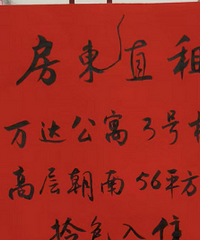 房東直租
万达公寓3号
高层朝南56平方
拎包入住